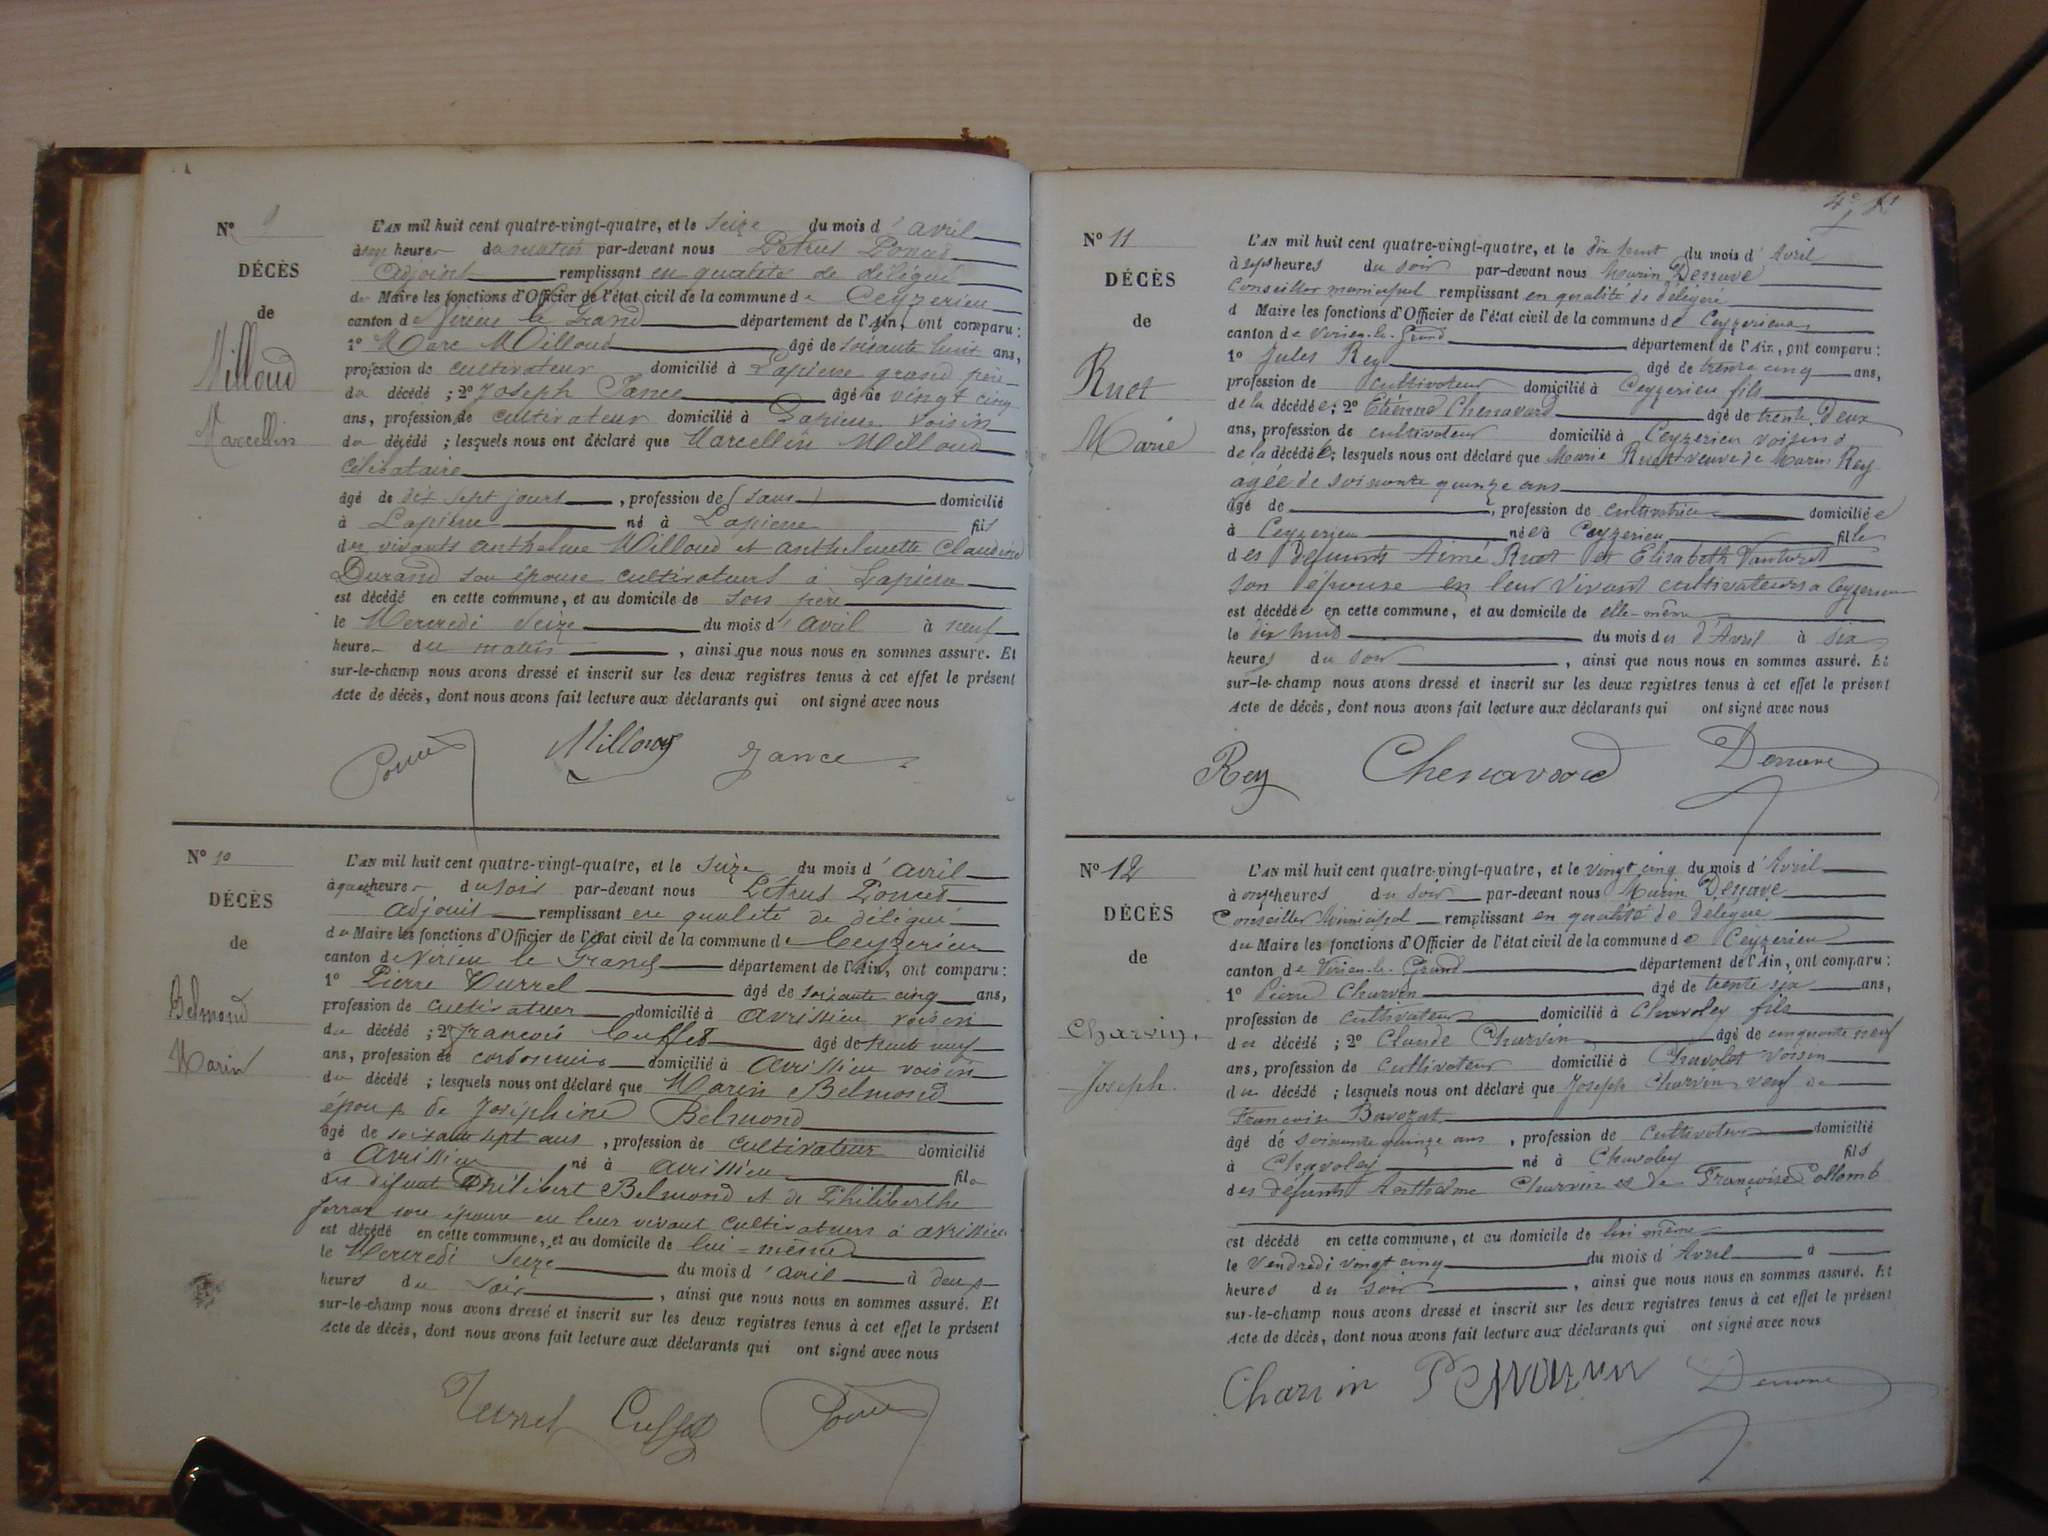 N° 9
DÉCÈS
de
Milloud
Marcellin
L'AN mil huit cent quatre-vingt-quatre, et le seize du mois d'avril
à onze heures du matin par-devant nous Pétrus Poncet
adjoint remplissant en qualité de délégué
du Maire les fonctions d'Officier de l'état civil de la commune de Ceyzerieu
canton de Virieu le Grand département de l'Ain, ont comparu :
1° Marc Milloud âgé de soixante huit ans,
profession de cultivateur domicilié à Lapierre grand père
du décédé ; 2° Joseph Jance âgé de vingt cinq
ans, profession de cultivateur domicilié à Lapierre voisin
du décédé ; lesquels nous ont déclaré que Marcellin Milloud
célibataire
âgé de dix sept jours, profession de (sans) domicilié
à Lapierre né à Lapierre fils
des vivants anthelme Milloud et anthelmette Claudine
Durand son épouse cultivateurs à Lapierre
est décédé en cette commune, et au domicile de son père
le Mercredi seize du mois d'avril à neuf
heures du matin, ainsi que nous nous en sommes assuré. Et
sur-le-champ nous avons dressé et inscrit sur les deux registres tenus à cet effet le présent
Acte de décès, dont nous avons fait lecture aux déclarants qui ont signé avec nous
Poncet Milloud Jance
N° 10
DÉCÈS
de
Belmond
Marin
L'AN mil huit cent quatre-vingt-quatre, et le seize du mois d'avril
à quatre heures du soir par-devant nous Pétrus Poncet
adjoint remplissant en qualité de délégué
du Maire les fonctions d'Officier de l'état civil de la commune de Ceyzerieu
canton de Virieu le Grand département de l'Ain, ont comparu :
1° Pierre Turrel âgé de soixante cinq ans,
profession de cultivateur domicilié à avrissieu voisin
du décédé ; 2° françois Cuffet âgé de trente neuf
ans, profession de cordonnier domicilié à avrissieu voisin
du décédé ; lesquels nous ont déclaré que Marin Belmond
époux de Joséphine Belmond
âgé de soixante sept ans, profession de cultivateur domicilié
à avrissieu né à avrissieu fils
des défunt Philibert Belmond et de Philiberthe
ferrar son épouse en leur vivant cultivateurs à avrissieu
est décédé en cette commune, et au domicile de lui-même
le Mercredi seize du mois d'avril à deux
heures du soir, ainsi que nous nous en sommes assuré. Et
sur-le-champ nous avons dressé et inscrit sur les deux registres tenus à cet effet le présent
Acte de décès, dont nous avons fait lecture aux déclarants qui ont signé avec nous
Turrel Cuffet Poncet
4e
N° 11
DÉCÈS
de
Ruet
Marie
L'AN mil huit cent quatre-vingt-quatre, et le dix huit du mois d'Avril
à sept heures du soir par-devant nous Marin Derrave
Conseiller municipal remplissant en qualité de délégué
d Maire les fonctions d'Officier de l'état civil de la commune de Ceyzerieu
canton de Virieu-le-Grand département de l'Ain, ont comparu :
1° Jules Rey âgé de trente cinq ans,
profession de cultivateur domicilié à Ceyzerieu fils
de la décédée ; 2° Etienne Chenavard âgé de trente deux
ans, profession de cultivateur domicilié à Ceyzerieu voisins
de la décédée ; lesquels nous ont déclaré que Marie Ruet veuve de Marin Rey
agée de soixante quinze ans
âgé de , profession de cultivatrice domiciliée
à Ceyzerieu née à Ceyzerieu fille
des Défunts Aimé Ruet et Elisabeth
son épouse en leur vivant cultivateurs à Ceyzerieu
est décédée en cette commune, et au domicile de elle-même
le dix huit du mois du d'Avril à six
heures du soir, ainsi que nous nous en sommes assuré. Et
sur-le-champ nous avons dressé et inscrit sur les deux registres tenus à cet effet le présent
Acte de décès, dont nous avons fait lecture aux déclarants qui ont signé avec nous
Rey Chenavard Derrave
N° 12
DÉCÈS
de
Charvin
Joseph.
L'AN mil huit cent quatre-vingt-quatre, et le vingt cinq du mois d'Avril
à onze heures du soir par-devant nous Marin Derrave
Conseiller Municipal remplissant en qualité de Délégué
du Maire les fonctions d'Officier de l'état civil de la commune de Ceyzerieu
canton de Virieu-le-Grand département de l'Ain, ont comparu :
1° Pierre Charvin âgé de trente six ans,
profession de cultivateur domicilié à Chavoley fils
du décédé ; 2° Claude Charvin âgé de cinquante neuf
ans, profession de Cultivateur domicilié à Chavoley voisin
du décédé ; lesquels nous ont déclaré que Joseph Charvin veuf de
Françoise Bavozat
âgé de soixante quinze ans, profession de Cultivateur domicilié
à Chavoley né à Chavoley fils
des défunts Anthelme Charvin et de Françoise Collomb
est décédé en cette commune, et au domicile de lui même
le Vendredi vingt cinq du mois d'Avril à
heures du soir, ainsi que nous nous en sommes assuré. Et
sur-le-champ nous avons dressé et inscrit sur les deux registres tenus à cet effet le présent
Acte de décès, dont nous avons fait lecture aux déclarants qui ont signé avec nous
Charvin Derrave